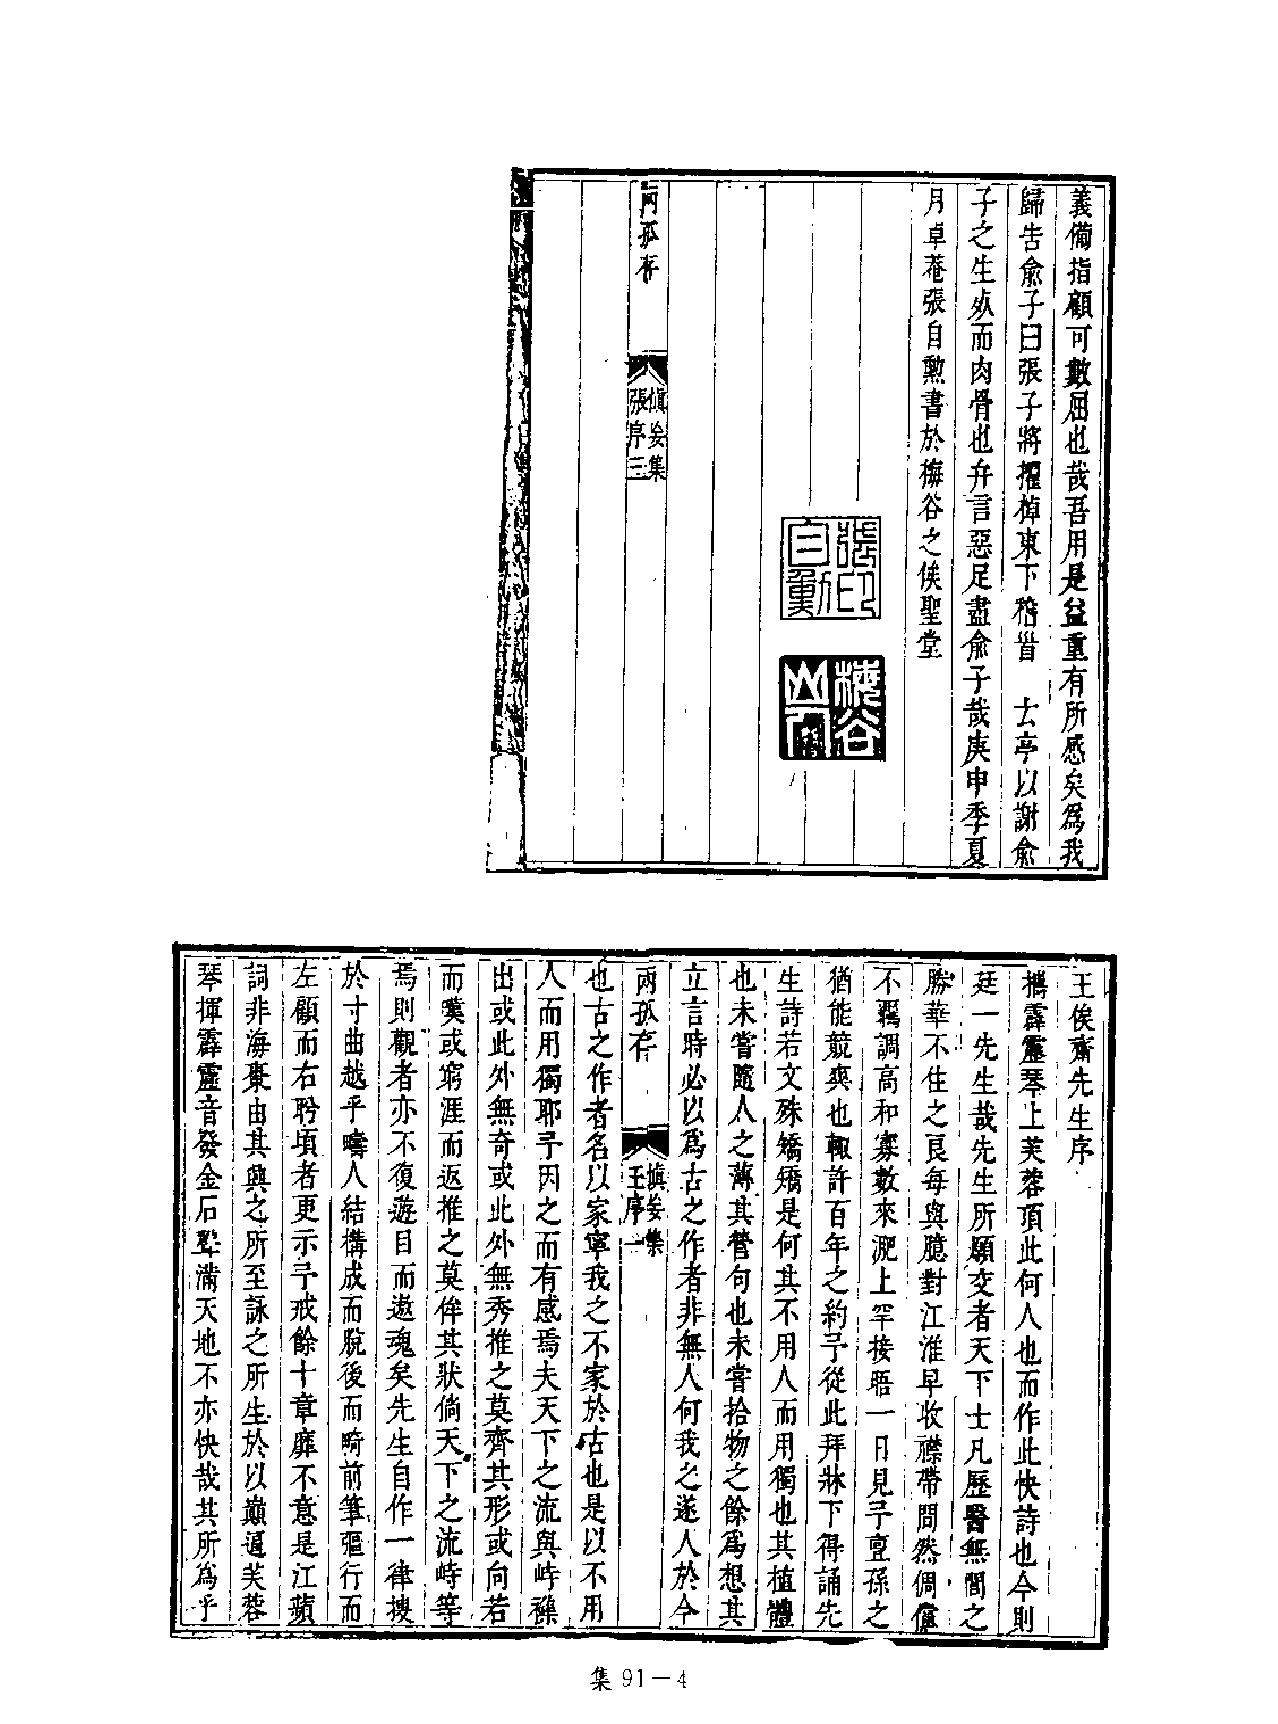 義備指顧可數屈也哉吾用是益重有所感矣爲我
歸告俞子曰張子將擢棹東下稽首 士亭以謝俞
子之生死而肉骨也弁言惡足盡俞子哉庚申季夏
月卓菴張自勲書於梅谷之俟聖堂
張自勲印
梅谷山
兩孤存
慎妄集
張序三
王俟齋先生序
攜霹靂琴上芙蓉頂此何人也而作此快詩也今則
廷一先生哉先生所願交者天下士凡歷醫無閭之
勝華不住之艮每與臆對江淮早收襟帶問然倜儻
不羈調高和寡數來淝上罕接晤一日見予亶孫之
猶能競爽也輒許百年之約予從此拜牀下得誦先
生詩若文殊矯矯是何其不用人而用獨也其植體
也未嘗隨人之薄其管句也未嘗拾物之餘爲想其
立言時必以爲古之作者非無人何我之遂人於今
兩孤存
慎妄集
王序一
也古之作者名以家寧我之不家於古也是以不用
人而用獨耶予因之而有感焉夫天下之流與峙雜
出或此外無奇或此外無秀推之莫齊其形或向若
而嘆或窮涯而返推之莫侔其狀倘天下之流峙等
焉則觀者亦不復遊目而遨魂矣先生自作一律搜
於寸曲越乎疇人結構成而脫後而畸前筆彊行而
左顧而右聆頃者更示予戒餘十章靡不意是江蘋
詞非海棗由其興之所至詠之所生於以巔遁芙蓉
琴揮霹靂音發金石聲滿天地不亦快哉其所爲乎
集 91－4